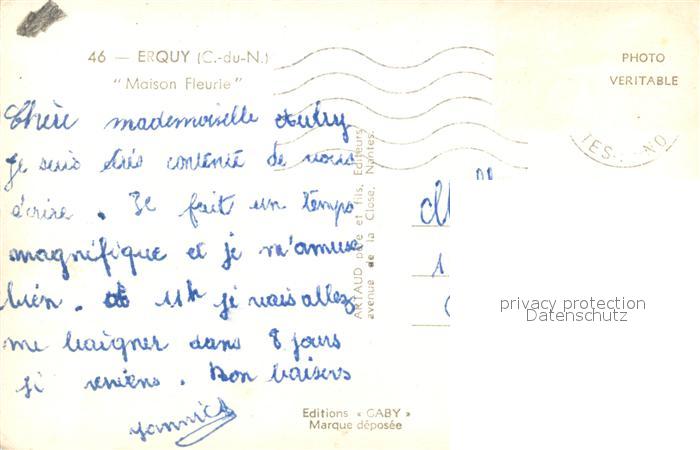 46 — ERQUY (C.-du-N.)
"Maison Fleurie"
PHOTO
VERITABLE
Chère mademoiselle Aubry
Je suis très contente de vous
écrire. Il fait un temps
magnifique et je m'amuse
bien. à 11h je vais allez
me baigner dans 8 jours
je reviens. Bon baisers
yannick
ARTAUD père et fils, Editeurs
avenue de la Close, Nantes.
Editions « GABY »
Marque déposée
privacy protection
Datenschutz